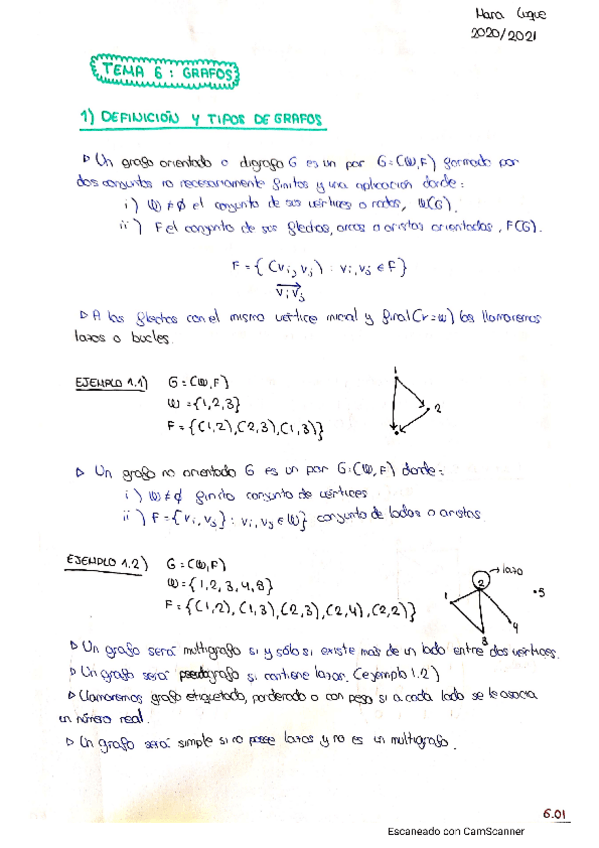 Mara Luque
2020/2021
TEMA 6: GRAFOS
1) DEFINICIÓN Y TIPOS DE GRAFOS
▷ Un grafo orientado o digrafo G es un par G=(W,F) formado por
dos conjuntos no necesariamente finitos y una aplicación donde:
i) W≠∅ el conjunto de sus vértices o nodos, W(G).
ii) F el conjunto de sus flechas, arcos o aristas orientadas, F(G).
F={(vi, vj) : vi, vj ∈ F}
vi vj
▷ A las flechas con el mismo vértice inicial y final (v=w) las llamaremos
lazos o bucles.
EJEMPLO 1.1) G=(W,F)
W={1,2,3}
F={(1,2),(2,3),(1,3)}
1
2
▷ Un grafo no orientado G es un par G=(W,F) donde:
i) W≠∅ finito conjunto de vértices
ii) F={vi, vj} : vi, vj ∈ W} conjunto de lados o aristas
EJEMPLO 1.2) G=(W,F)
W={1,2,3,4,8}
F={(1,2), (1,3), (2,3), (2,4), (2,2)}
lazo
2
1
3
4
•5
▷ Un grafo será multigrafo si y sólo si existe más de un lado entre dos vértices.
▷ Un grafo será pseudografo si contiene lazos. (ejemplo 1.2)
▷ Llamaremos grafo etiquetado, ponderado o con peso si a cada lado se le asocia
un número real.
▷ Un grafo será simple si no posee lazos y no es un multigrafo.
6.01
Escaneado con CamScanner